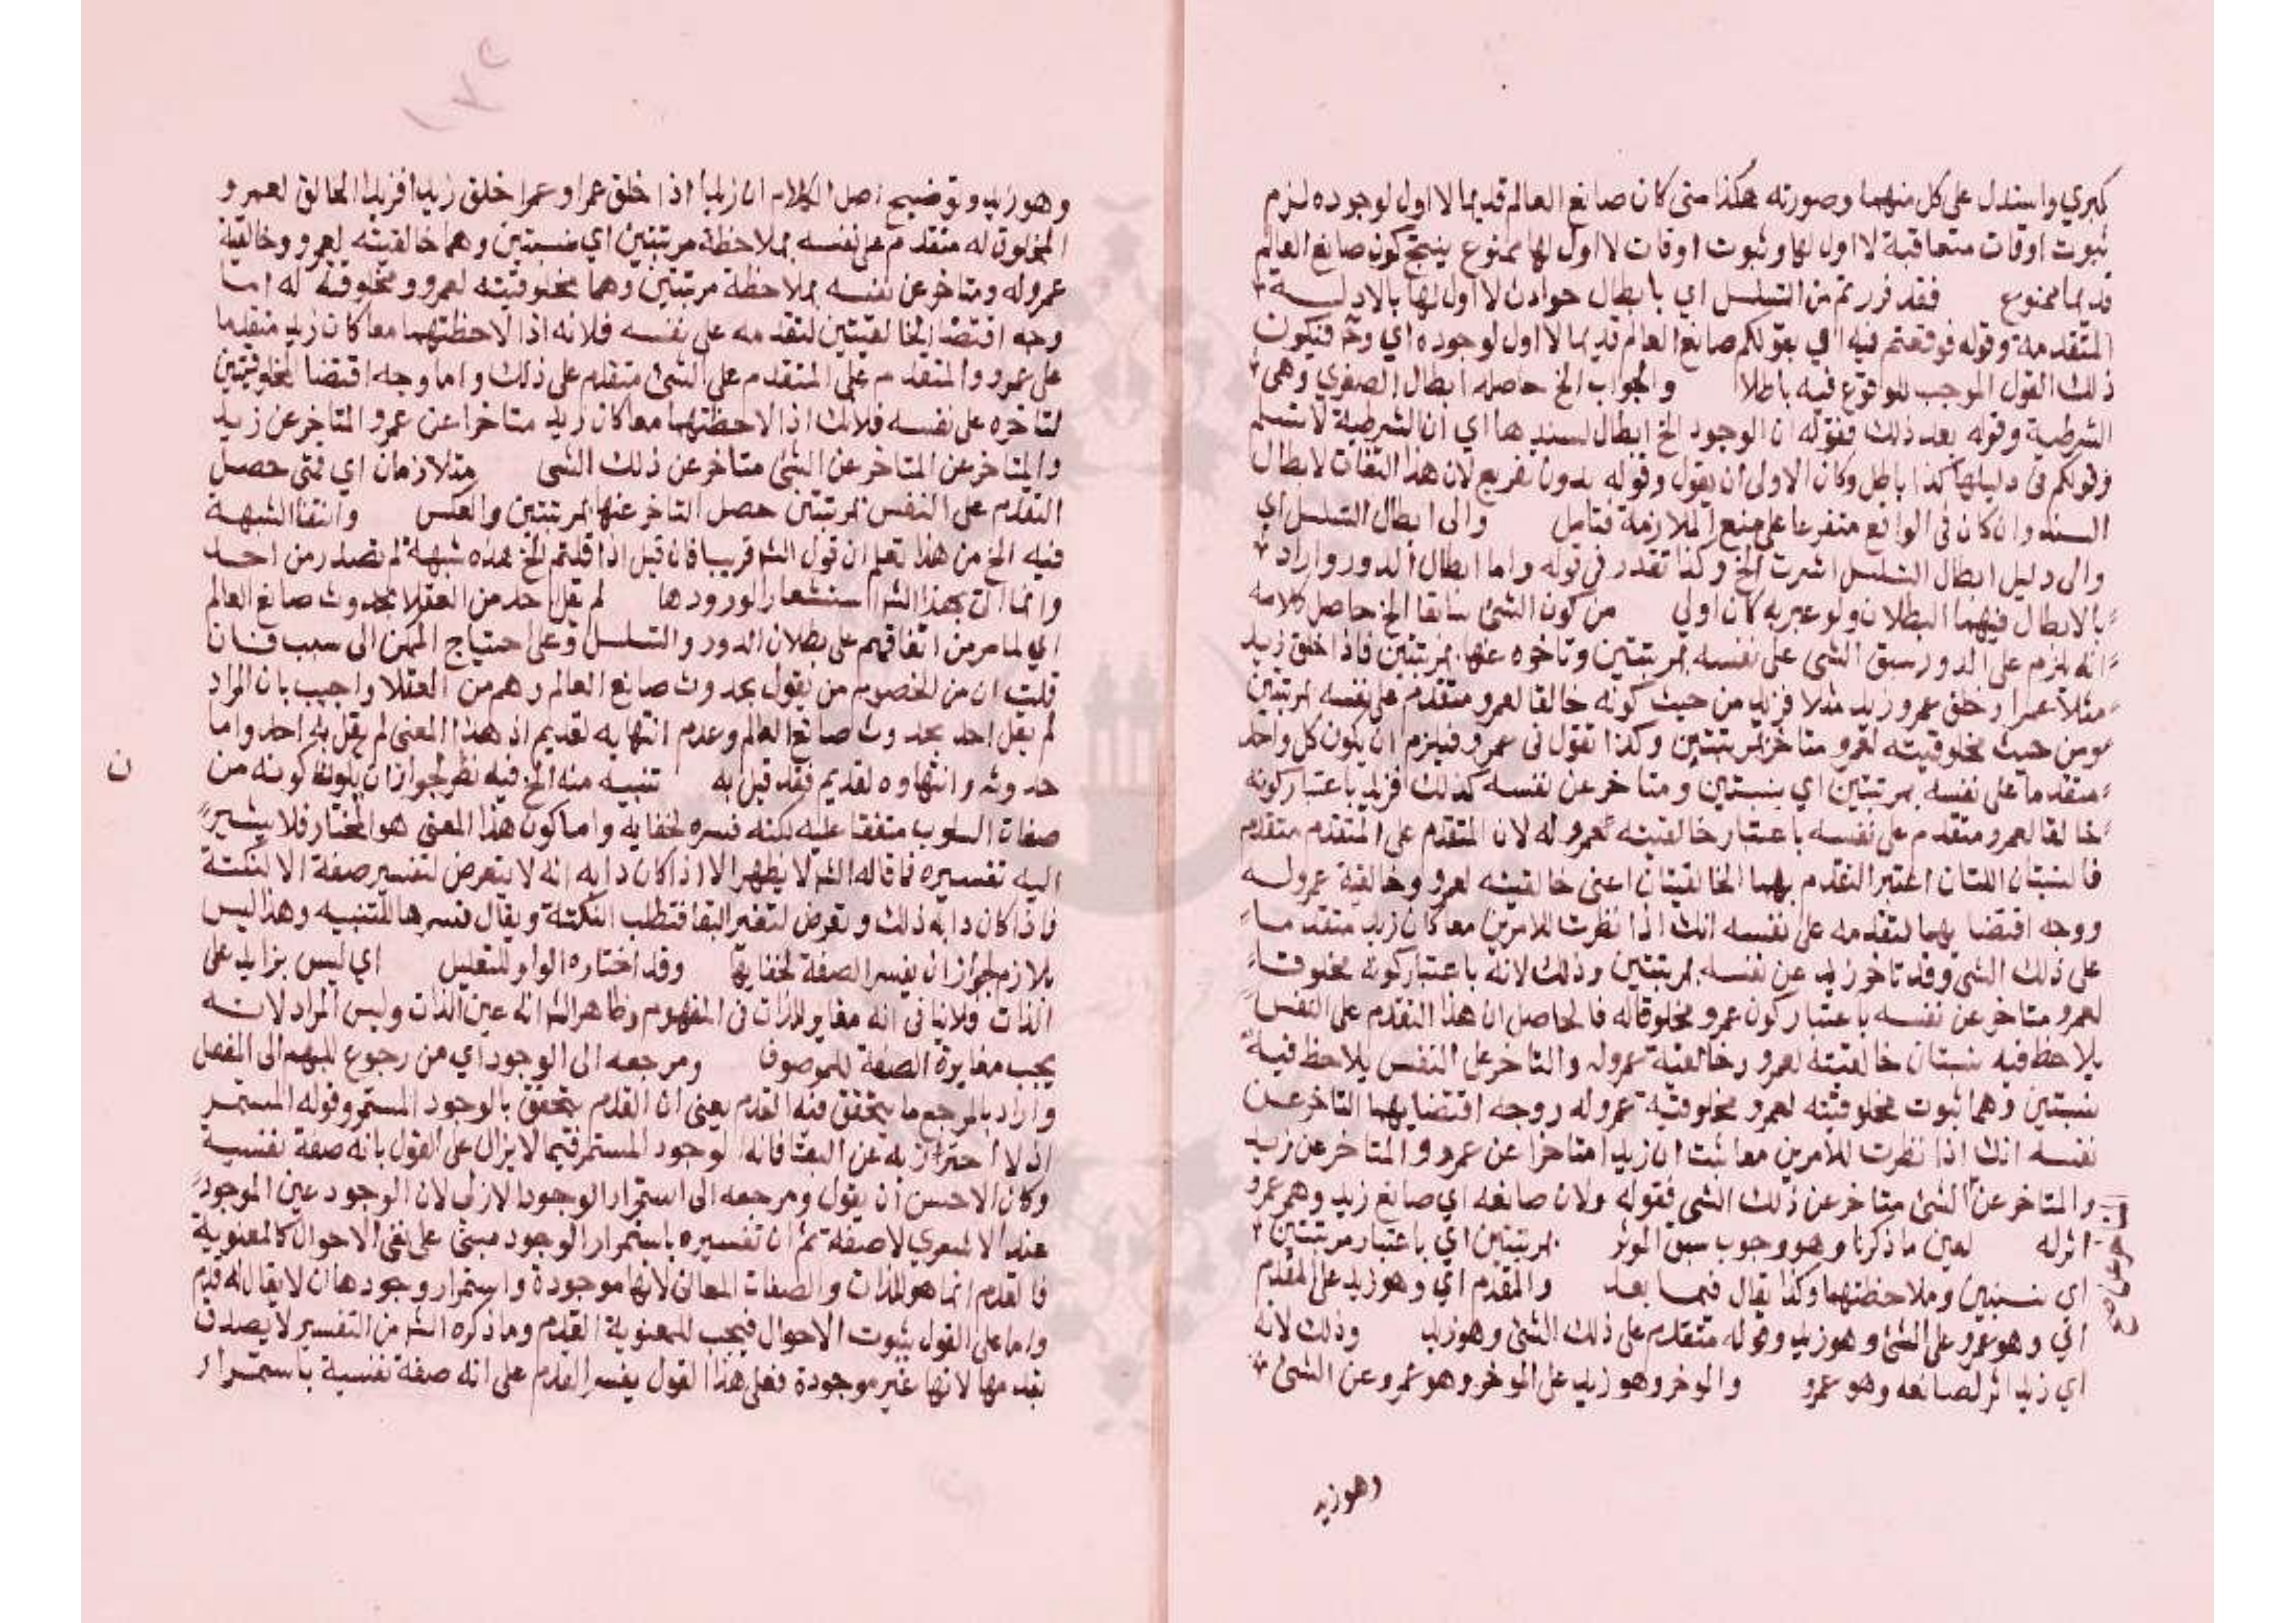 كبري واستدل على كل منهما وصورته هكذا متى كان صانع العالم قديما لا اول لوجوده لزم
ثبوت اوقات متعاقبة لا اول لها وثبوت اوقات لا اول لها ممنوع ينتج كون صانع العالم
قديما ممنوع فقد فررتم من التسلسل اي بابطال حوادث لا اول لها بالادلـــة
المتقدمة وقوله فوقعتم فيه اي بقولكم صانع العالم قديما لا اول لوجوده اي وح فيكون
ذلك القول الموجب للوقوع فيه باطلا والجواب الخ حاصله ابطال الصغري وهي
الشرطية وقوله بعد ذلك فقوله ان الوجود الخ ابطال لسندها اي ان الشرطية لا تسلم
وقولكم في دليلها كذا باطل وكان الاولى ان يقول وقوله بدون تفريع لان هذا التفات لابطال
السند وان كان في الواقع متفرعا على منع الملازمة فتامل والى ابطال التسلسل اي
والى دليل ابطال التسلسل اشرت الخ وكذا تقدر في قوله واما ابطال الدور واراد
بالابطال فيهما البطلان ولو عبر به كان اولي من كون الشئ سابقا الخ حاصل كلامه
انه يلزم على الدور سبق الشى على نفسه بمرتبتين وتاخره عنها بمرتبتين فاذا خلق زيد
مثلا عمرا وخلق عمرو زيد مثلا فزيد من حيث كونه خالقا لعمرو متقدم على نفسه بمرتبتين
ومن حيث مخلوقيته لعمرو متاخر بمرتبتين وكذا تقول في عمرو فيلزم ان يكون كل واحد
متقدما على نفسه بمرتبتين اي بنسبتين ومتاخر عن نفسه كذلك فزيد باعتبار كونه
خالقا لعمرو متقدم على نفسه باعتبار خالقيته لعمرو له لان المتقدم على المتقدم متقدم
فالنسبتان اللتان اعتبر التقدم بهما الخالقيتان اعنى خالقيته لعمرو وخالقية عمرو لـــه
ووجه اقتضايهما لتقدمه على نفسه انك اذا نظرت للامرين معا كان زيد متقدمـــا
على ذلك الشى وقد تاخر زيد عن نفسه بمرتبتين وذلك لانه باعتبار كونه مخلوقا
لعمرو متاخر عن نفسه باعتبار كون عمرو مخلوقا له فالحاصل ان هذا التقدم على النفس
يلاحظ فيه نسبتان خالقيته لعمرو وخالقية عمرو له والتاخر على النفس يلاحظ فيه
نسبتين وهما ثبوت مخلوقيته لعمرو ومخلوقية عمرو له ووجه اقتضايهما التاخر عـــن
نفسه انك اذا نظرت للامرين معا ثبت ان زيدا متاخرا عن عمرو والمتاخر عن زيد
والمتاخر عن الشئ متاخر عن ذلك الشى فقوله ولان صانعه اي صانع زيد وهو عمرو
اثر له لعين ما ذكرنا وهو وجوب سبق الموثر بمرتبتين اي باعتبار مرتبتين
اي نسبتين وملاحظتهما وكذا يقال فيمـا بعد والمقدم اي وهو زيد على المقدم
اي وهو عمرو على الشئ وهو زيد وقوله متقدم على ذلك الشئ وهو زيد وذلك لانه
اي زيد اثر لصانعه وهو عمرو والموخر وهو زيد على الموخر وهو عمرو عن الشئ
وهو زيد
وهو زيد وتوضيح اصل الكلام ان زيدا اذا خلق عمرا وعمرا خلق زيدا فزيدا الخالق لعمرو
المخلوق له متقدم على نفسه بملاحظة مرتبتين اي نسبتين وهما خالقيته لعمرو وخالقية
عمرو له ومتاخر عن نفسه بملاحظة مرتبتين وهما مخلوقيته لعمرو ومخلوقيته له امـا
وجه اقتضا الخالقيتين لتقدمه على نفسه فلانه اذا لاحظتهما معا كان زيد متقدما
على عمرو والمتقدم على المتقدم على الشئ متقدم على ذلك واما وجه اقتضا المخلوقيتين
لتاخره على نفسه فلانك اذا لاحظتهما معا كان زيد متاخرا عن عمرو المتاخر عن زيد
والمتاخر عن المتاخر عن الشئ متاخر عن ذلك الشى متلازمان اي فمتى حصل
التقدم على النفس بمرتبتين حصل التاخر عنها بمرتبتين والعكس وانتفا الشبهة
فيه الخ من هذا تعلم ان قول الش قريبا فان قيل اذا قلتم الخ هذه شبهة لم تصدر من احـد
وانما اتى بهذا الش استشعار الورودها لم يقل احد من العقلا بحدوث صانع العالم
اي لما مر من اتفاقهم على بطلان الدور والتسلسل وعلى احتياج الممكن الى سبب فــان
قلت ان من الخصوم من يقول بحدوث صانع العالم وهم من العقلا واجيب بان المراد
لم يقل احد بحدوث صانع العالم وعدم انتهايه لقديم اذ هذا المعنى لم يقل به احد واما
حدوثه وانتهاوه لقديم فقد قيل به تنبيه منه الخ فيه نظر لجواز ان يكون كونه من
ن
صفات السلوب متفقا عليه لكنه فسره لخفايه واما كون هذا المعنى هو المختار فلا يشير
اليه تفسيره فما قاله الش لا يظهر الا اذا كان دابه انه لا يتعرض لتفسير صفة الا لنكتة
واذا كان دابه ذلك وتعرض لتفسير البقا فتطلب النكتة ويقال فسرها للتنبيه وهذا ليس
بلازم لجواز ان يفسر الصفة لخفايها وقد اختاره الواو للتعليل اي ليس بزايد على
الذات فلا ينافي انه مغاير للذات في المفهوم وظاهر الش انه عين الذات وليس المراد لانــه
يجب مغايرة الصفة للموصوف ومرجعه الى الوجود اي من رجوع المبهم الى المفصل
واراد بالمرجع ما يتحقق فيه القدم يعنى ان القدم يتحقق بالوجود المستمر وقوله المستمـر
ازلا احتراز به عن البقا فانه الوجود المستمر فيما لا يزال على القول بانه صفة نفسية
وكان الاحسن ان يقول ومرجعه الى استمرار الوجود الازلى لان الوجود عين الموجود
عند الاشعري لا صفة ثم ان تفسيره باستمرار الوجود مبنى على نفى الاحوال كالمعنوية
فالقدم انما هو للذات والصفات المعانى لانها موجودة واستمرار وجودها ان لا يقال له قدم
واما على القول بثبوت الاحوال فيجب للمعنوية القدم وما ذكره الش من التفسير لا يصدق
بقدمها لانها غير موجودة فعلى هذا القول يفسر القدم على انه صفة نفسية باستمــرار